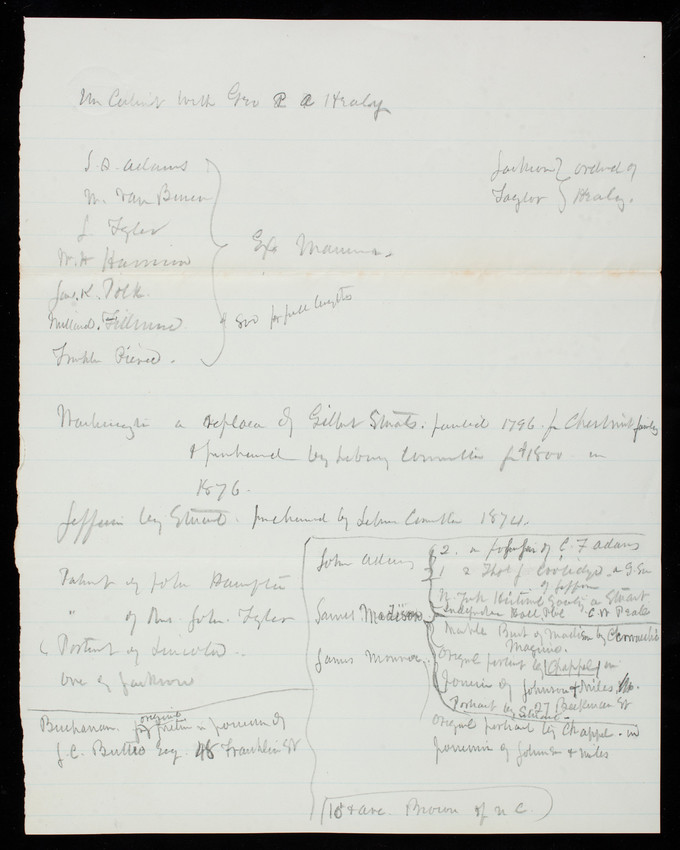 with Geo P A Healy
J. Q. Adams
M. Van Buren
J Tyler
W. H Harrison
Jas. K. Polk.
Millard. Fillmore
Franklin Pierce.
Jackson } ordered of
Taylor } Healy.
$ 800 for full lengths
Washington a replica of Gilbert Stuarts. painted 1796. for Chestnut family
& purchased by Library Committee for $1800 in
1876.
Jefferson by Stuart. purchased by Library Committee 1874.
of John Hampton
" of Mrs. John. Tyler
( Portrait of Lincoln..
One of Jackson
Buchanan. original picture in possession of
J. C. Esq. 48 Franklin St
John Adams
James Madison
James Monroe.
2. in possession of C. F Adams
1 Thos J Coolidge. a G. Son
of Jefferson
N. York Historical Society a Stuart
Independence Hall Phil C. W Peale
Marble Bust of Madison by Cerracchi
Original portrait by Chappel in
possession of Johnson & Miles No.
27 Beekman St
Portrait by
Original portrait by Chappel. in
possession of Johnson & Miles
Brown of N C.